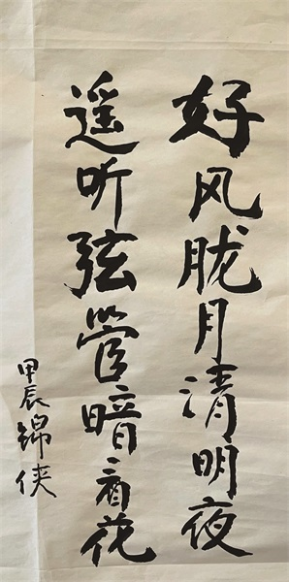 好风胧月清明夜
遥听弦管暗看花
甲辰锦侠